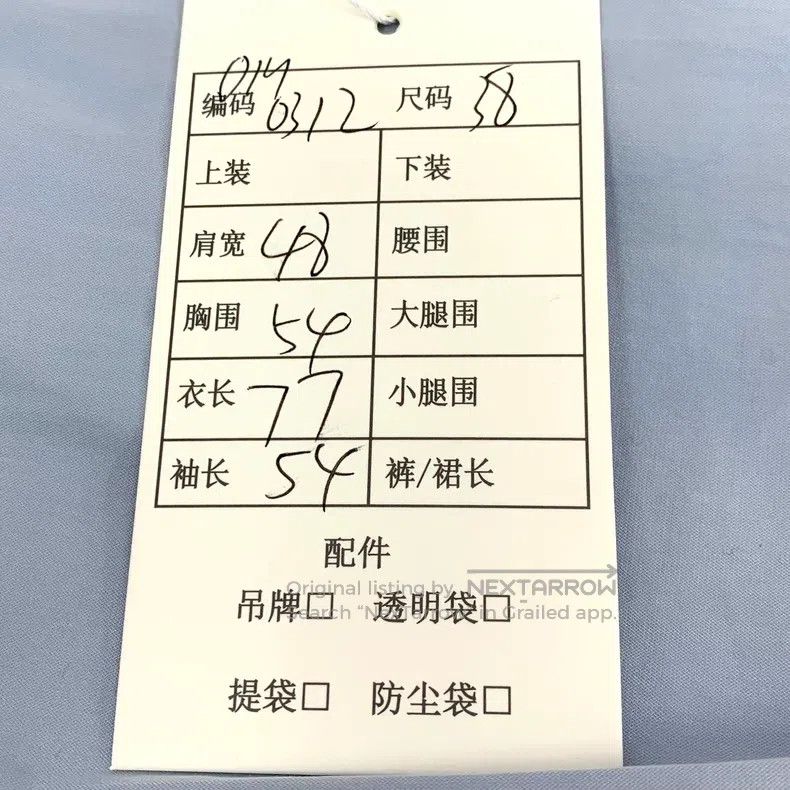 014
编码 0312 尺码 38
上装 下装
肩宽 48 腰围
胸围 54 大腿围
衣长 77 小腿围
袖长 54 裤/裙长
配件
Original listing by NEXTARROW
吊牌□ 透明袋□
Search "NextArrow" in Grailed app.
提袋□ 防尘袋□